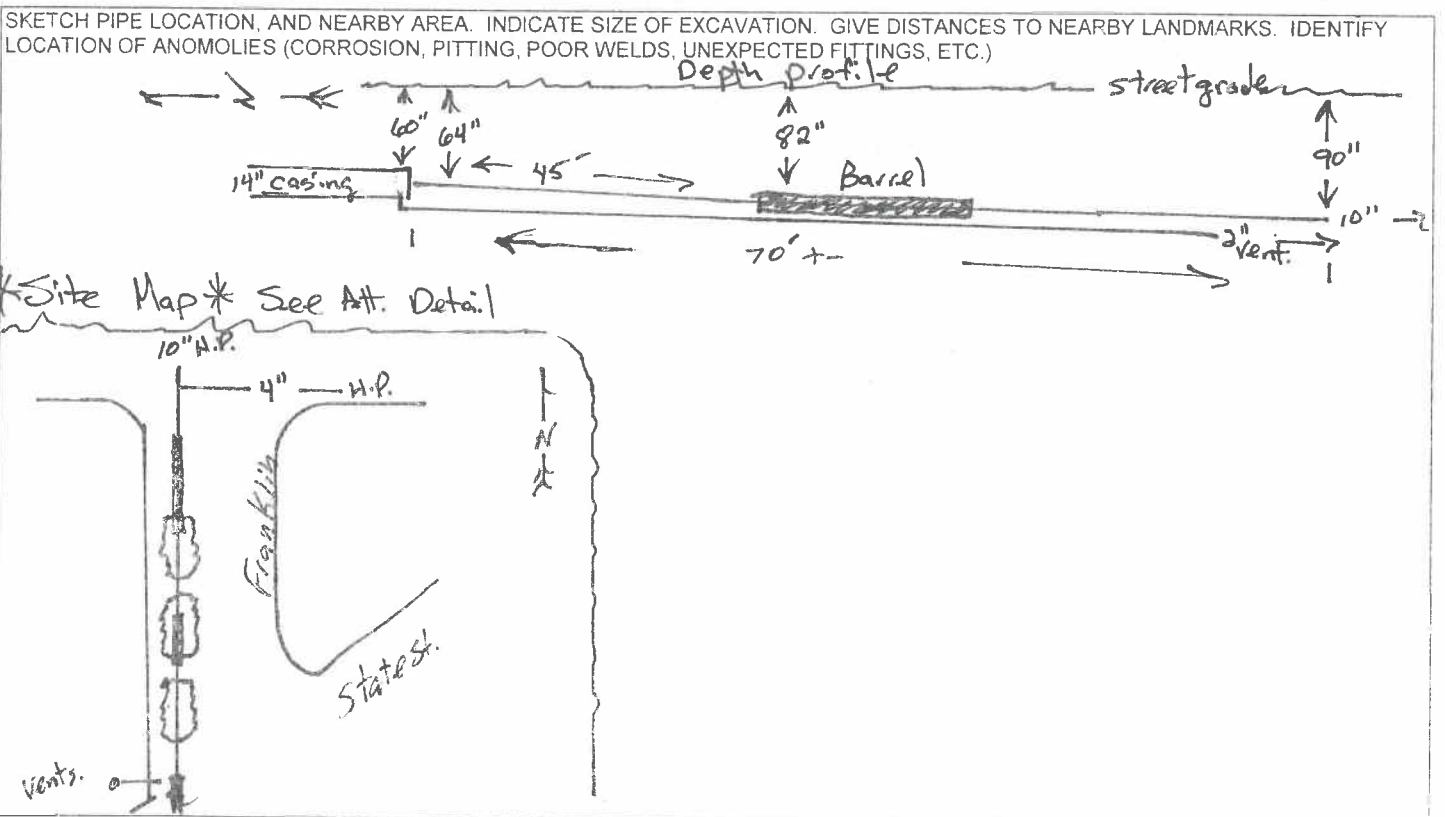 SKETCH PIPE LOCATION, AND NEARBY AREA. INDICATE SIZE OF EXCAVATION. GIVE DISTANCES TO NEARBY LANDMARKS. IDENTIFY
LOCATION OF ANOMOLIES (CORROSION, PITTING, POOR WELDS, UNEXPECTED FITTINGS, ETC.)
Depth profile
street grade
N
60"
64"
82"
90"
45'
Barrel
14" casing
10"
2" vent.
70' +-
*Site Map* See Att. Detail
10" H.P.
4" H.P.
N
Franklin
State St.
Vents.